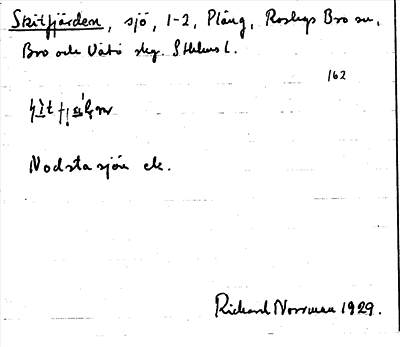 Skitfjärden, sjö, 1-2, Plång, Roslags Bro sn,
Bro och Vätö skg. Sthlms l.
162
Nodsta sjön ek.
Rickard Norrman 1929.